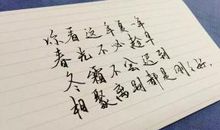 你看这年复一年
春光不必趁早
冬霜不会迟到
相聚离别都是刚刚好